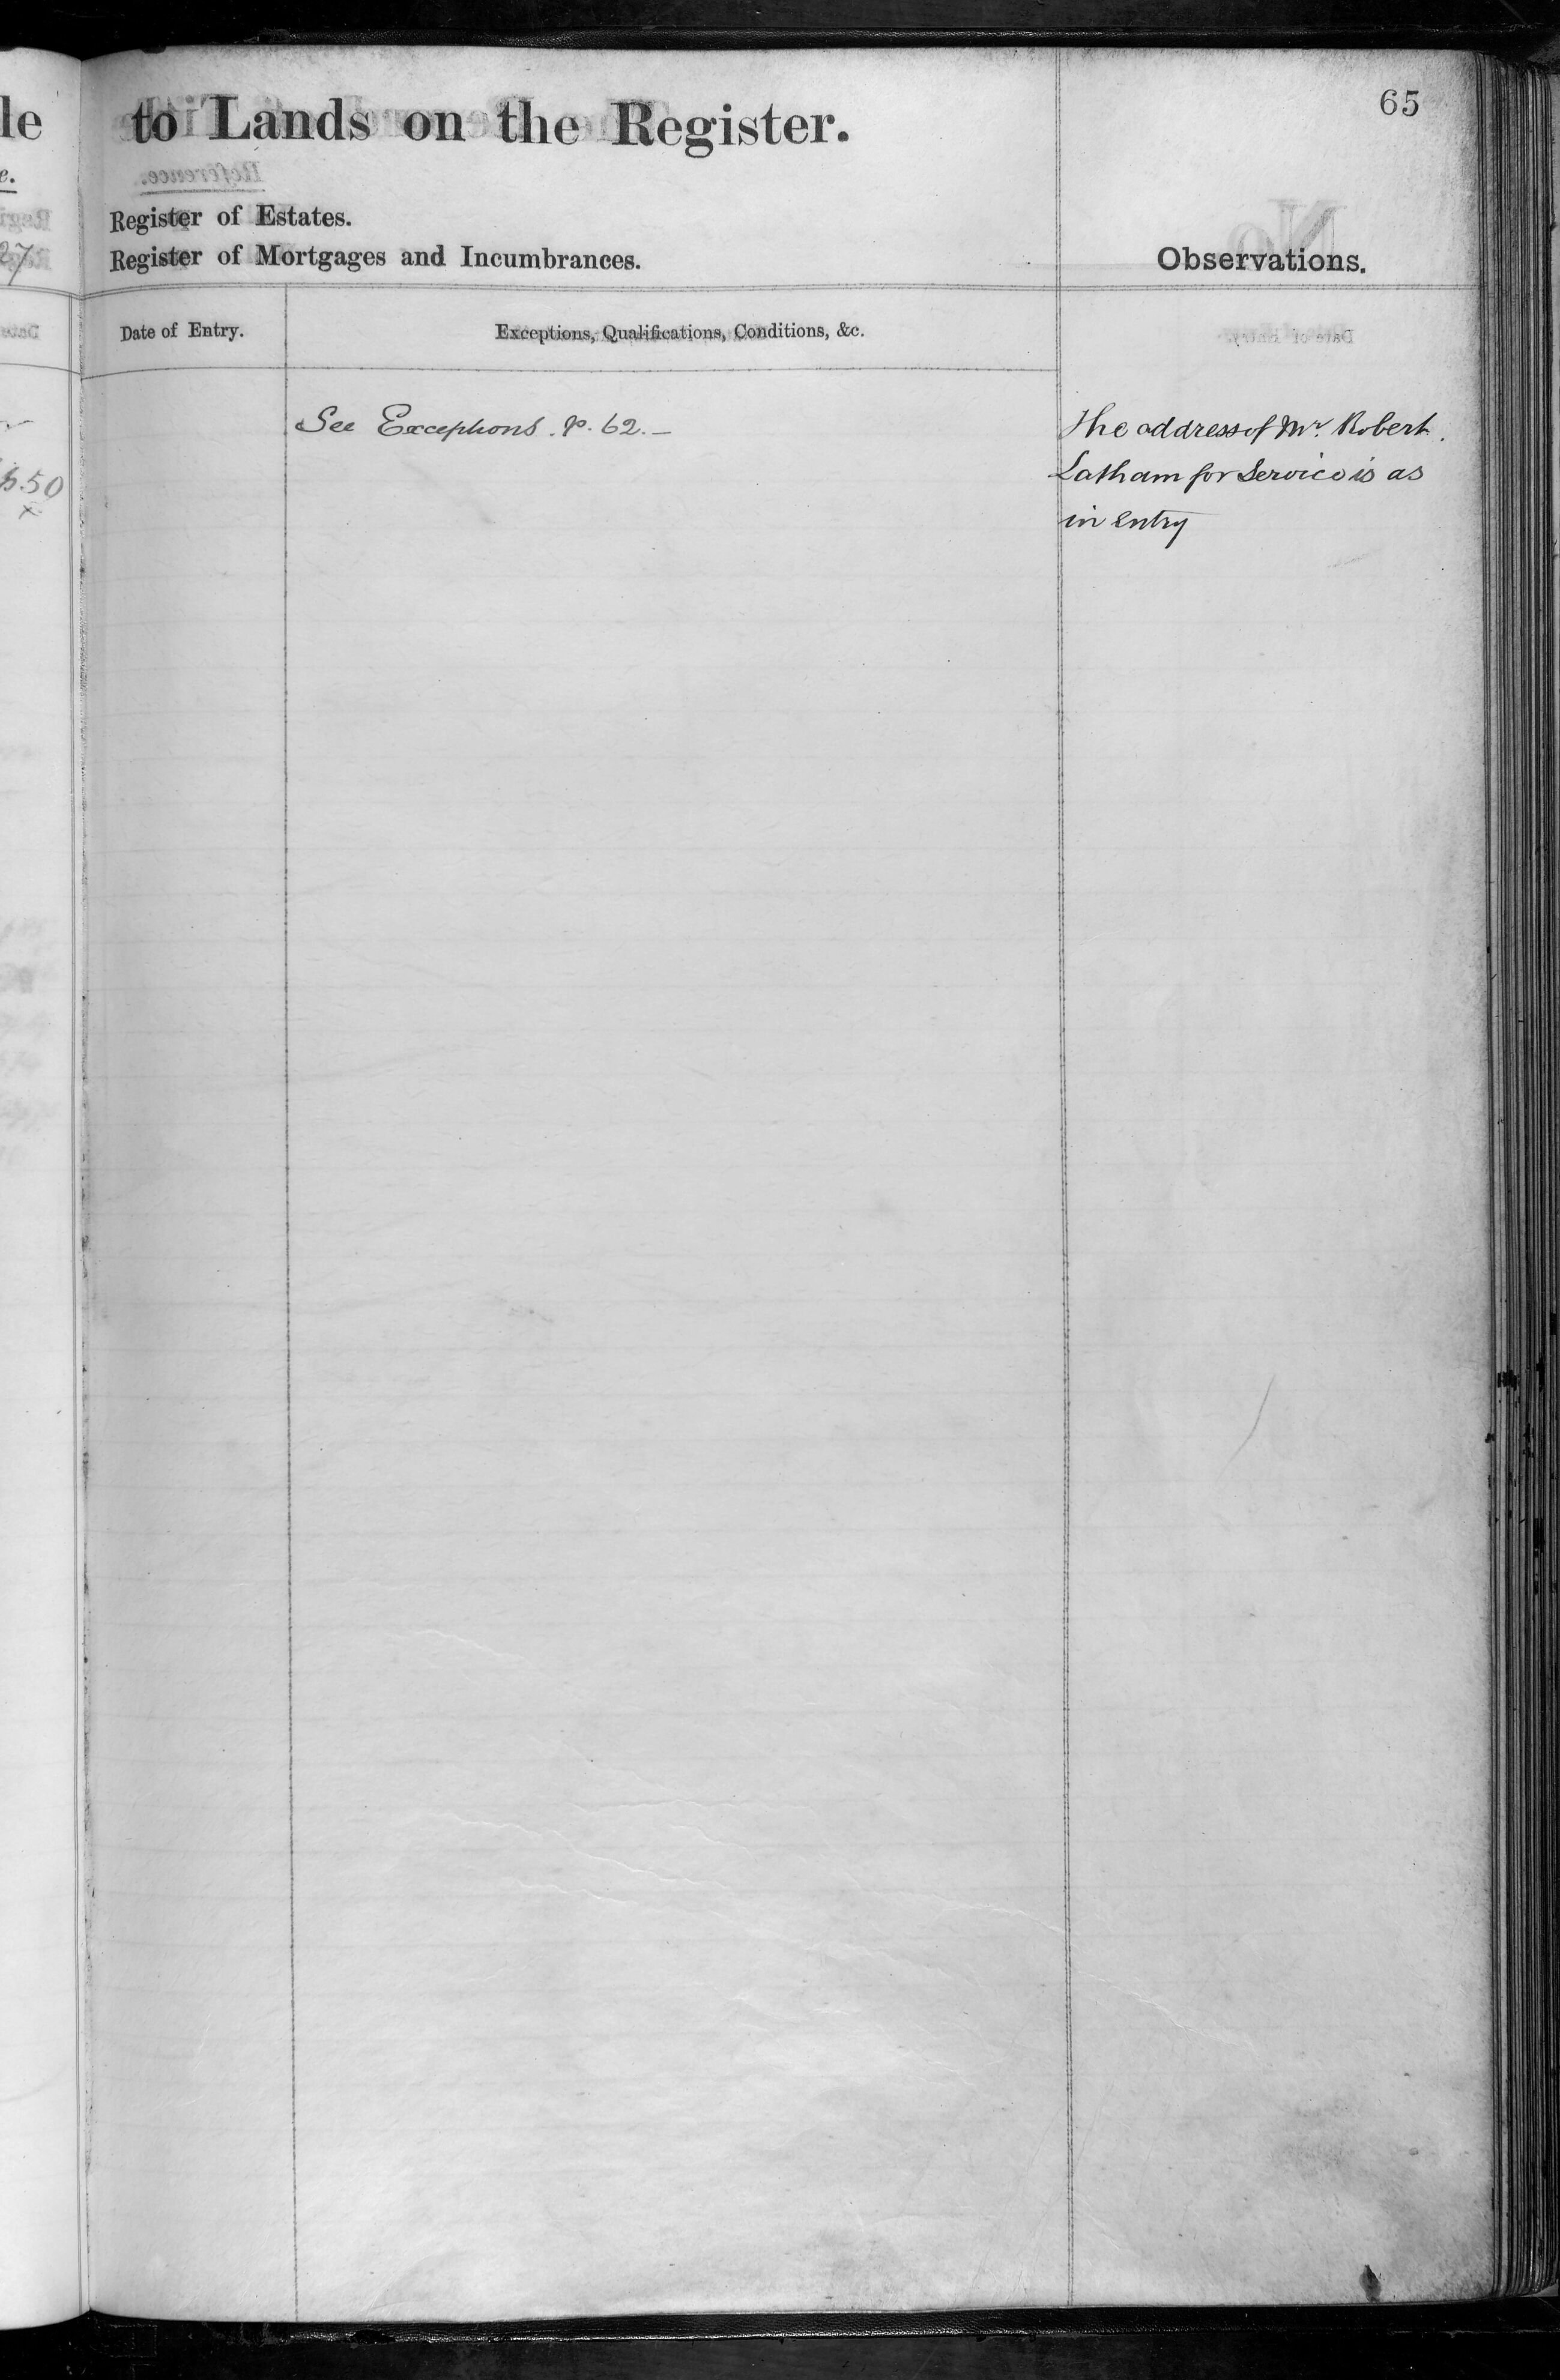 65
to Lands on the Register.
Register of Estates.
Register of Mortgages and Incumbrances.
Observations.
Date of Entry.
Exceptions, Qualifications, Conditions, &c.
See Exceptions. p. 62. —
The address of Mr. Robert
Latham for Service is as
in entry
le
e.
27
50